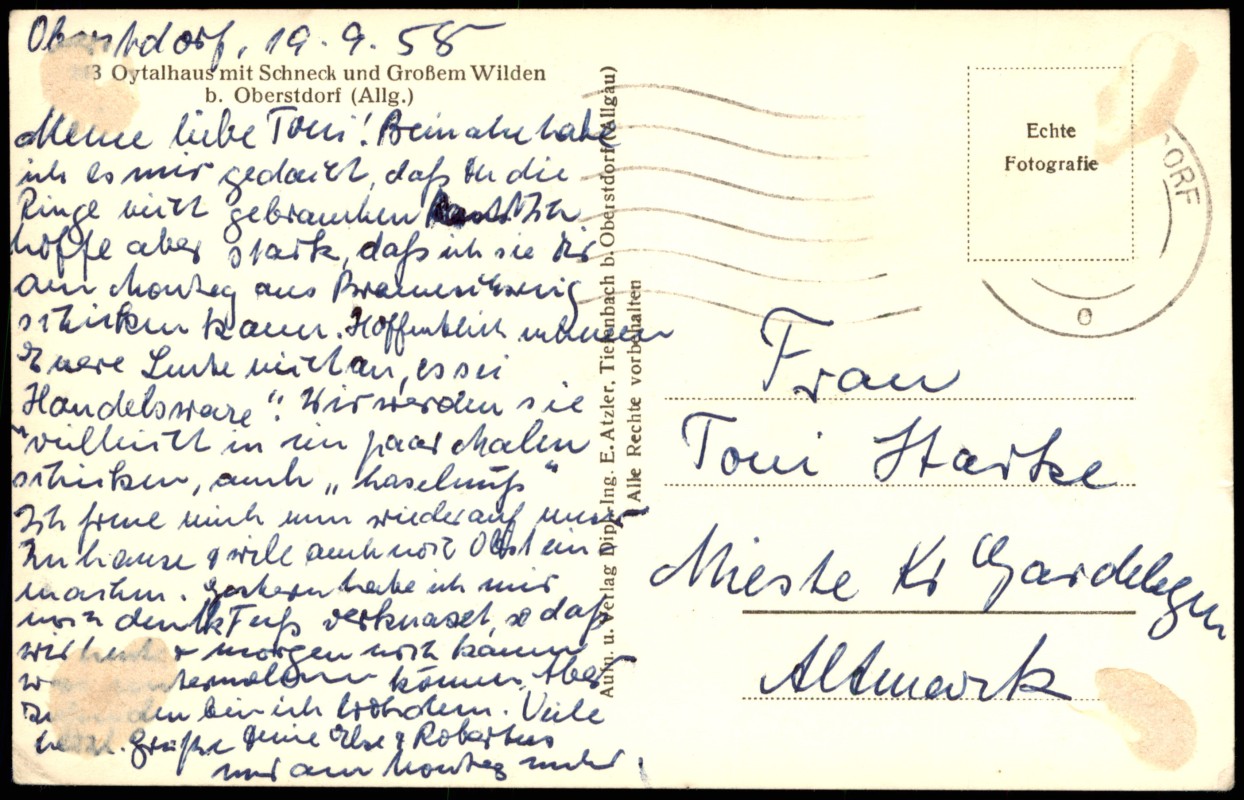 Oberstdorf, 19.9.58
3 Oytalhaus mit Schneck und Großem Wilden
b. Oberstdorf (Allg.)
Meine liebe Toni! Beinahe habe
ich es mir gedacht, daß Du die
Ringe nicht gebrauchen Ich
hoffe aber stark, daß ich sie Dir
am Montag aus Braunschweig
schicken kann. Hoffentlich nehmen
Euere Leute nicht an, es sei
"Handelsware". Wir werden sie
vielleicht in ein paar Malen
schicken, auch „Haselnuß"
Ich freue mich nun wieder auf unser
Zuhause & will auch noch Obst ein
machen. Gestern habe ich mir
noch den Fuß verknaxt, so daß
wir heute & morgen noch kaum
können. Aber
bin ich trotzdem. Viele
herzl. Grüße Deine Else & Robertus
am Montag mehr!
Aufn. u. Verlag Dipl.-Ing. E. Atzler, Tiefenbach b. Oberstdorf (Allgäu)
Alle Rechte vorbehalten
Echte
Fotografie
DORF
o
Frau
Toni Starke
Mieste Kr Gardelegen
Altmark